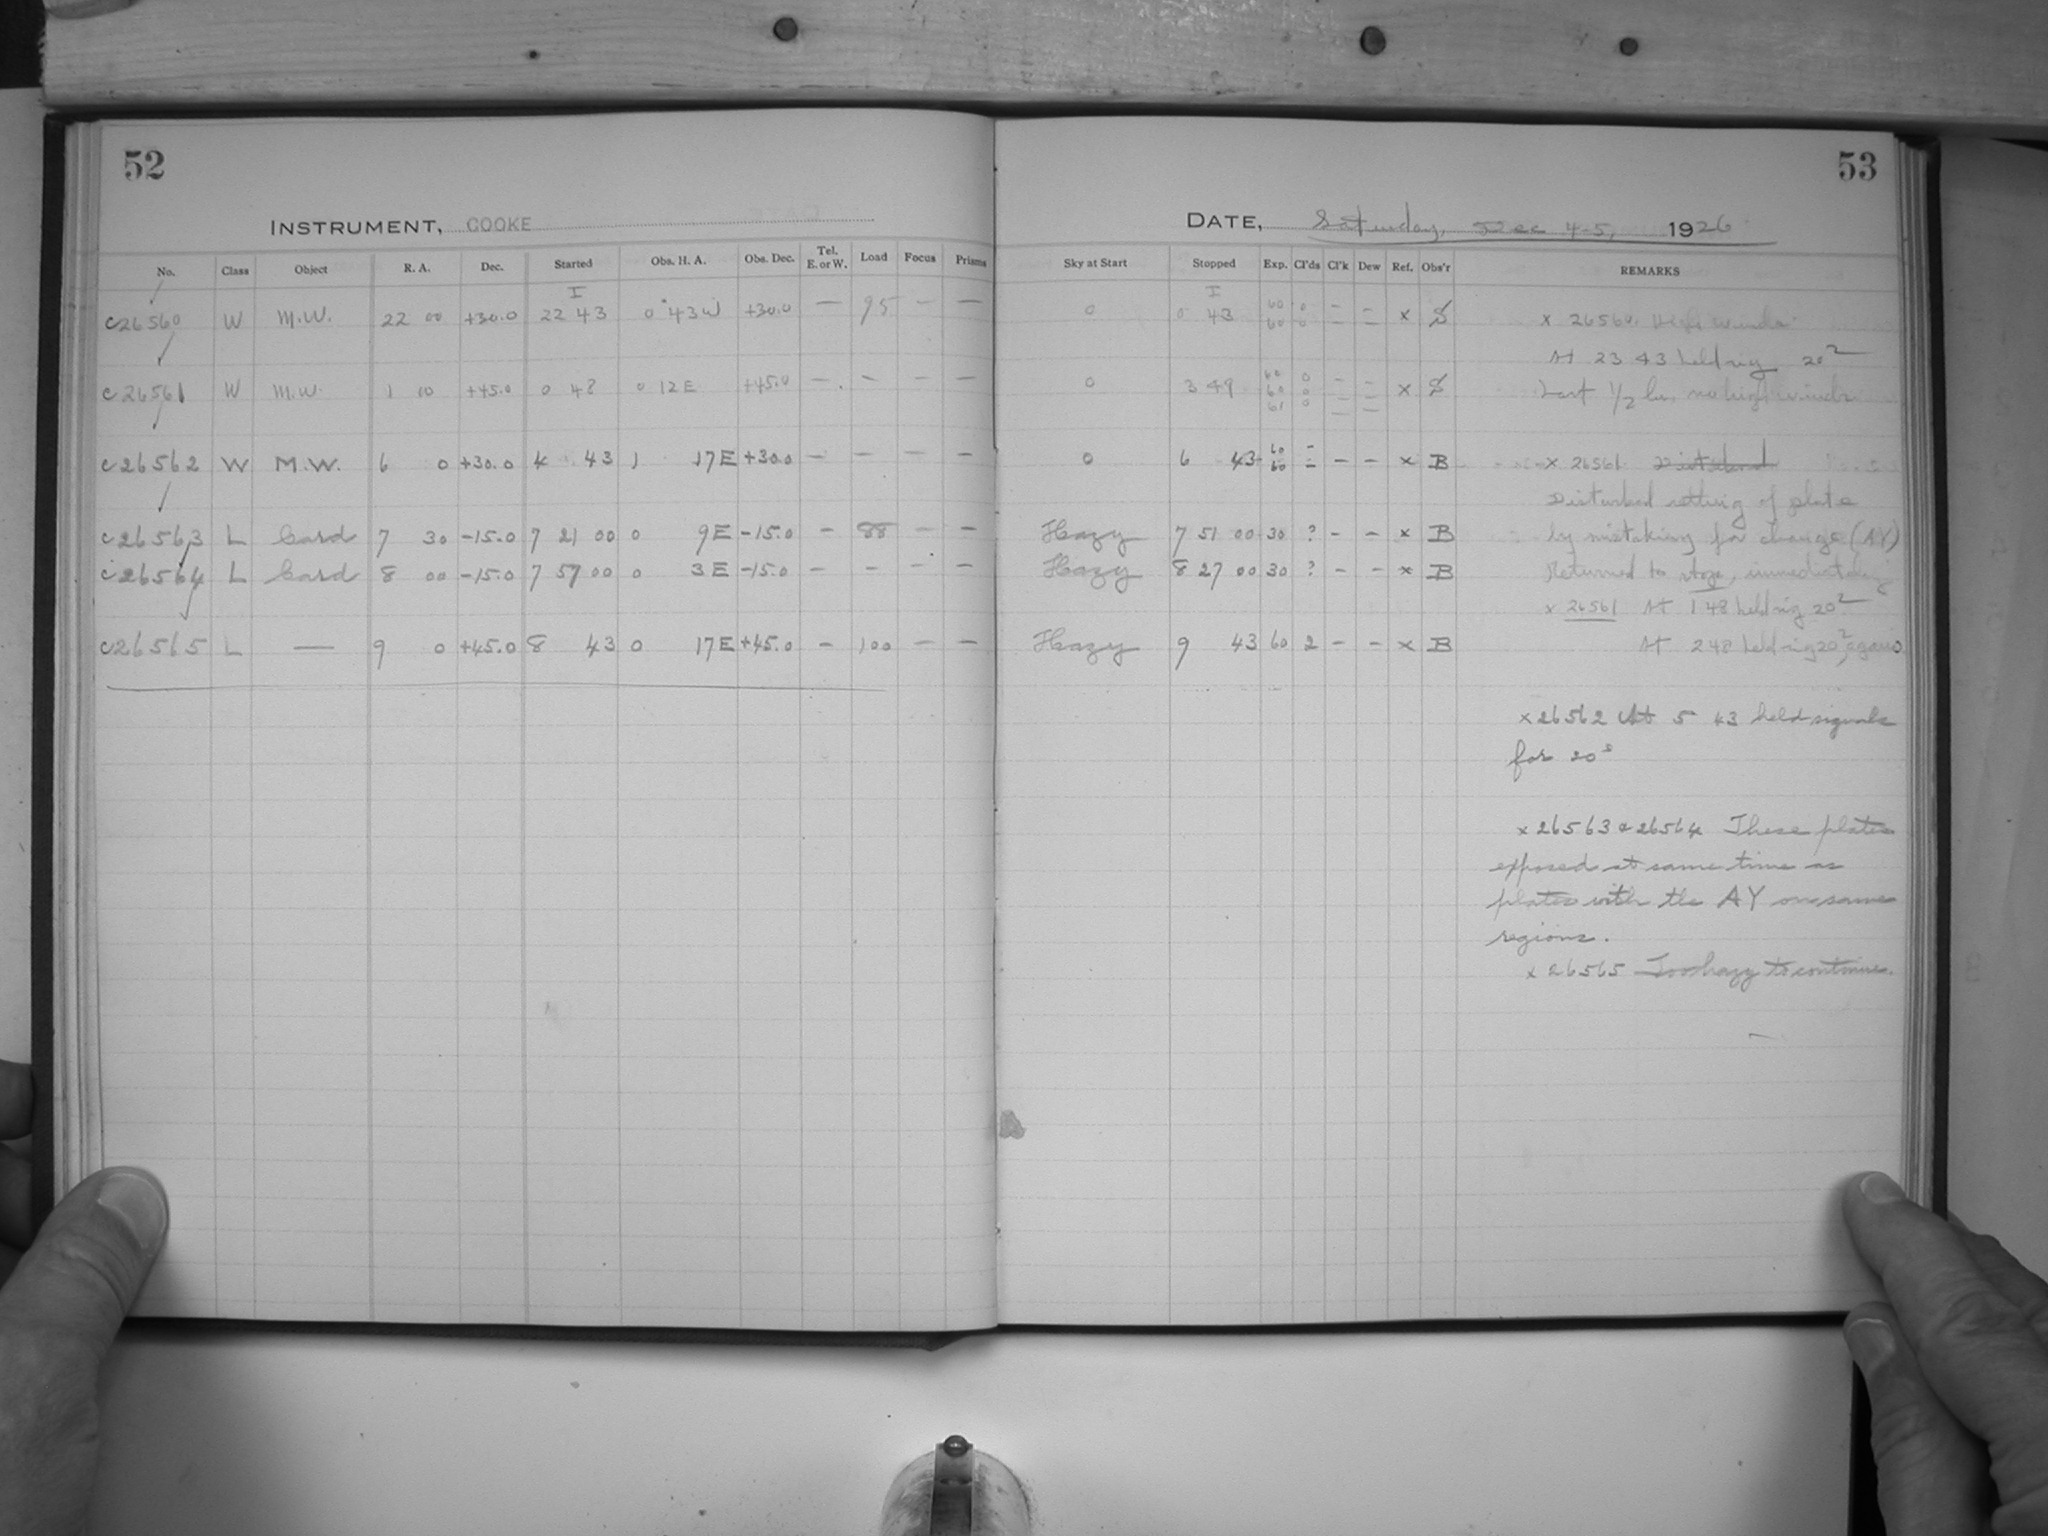 52
INSTRUMENT, COOKE
No. Class Object R. A. Dec. Started Obs. H. A. Obs. Dec. Tel. E. or W. Load Focus Prisms
I
c26560 W M.W. 22 00 +30.0 22 43 0 43W +30.0 — 95 — —
c26561 W M.W. 1 00 +45.0 0 48 0 12 E +45.0 — — — —
c26562 W M.W. 6 0 +30.0 4 43 1 17 E +30.0 — — — —
c26563 L Card 7 30 -15.0 7 21 00 0 9 E -15.0 — 88 — —
c26564 L Card 8 00 -15.0 7 57 00 0 3 E -15.0 — — — —
c26565 L — 9 0 +45.0 8 43 0 17 E +45.0 — 100 — —
53
DATE, Saturday, Dec 4-5, 1926
Sky at Start Stopped Exp. Cl'ds Cl'k Dew Ref. Obs'r REMARKS
I
0 0 43 60 60 0 0 — — — — x S
0 3 49 60 60 61 0 0 0 — — — — — — x S
0 6 43 60 60 — — — — x B
Hazy 7 51 00 30 ? — — x B
Hazy 8 27 00 30 ? — — x B
Hazy 9 43 60 2 — — x B
x 26560. High winds
At 23 43 held sig 20s
Last 1/2 hr. no high winds
x 26561 Disturbed
Disturbed setting of plate
by mistaking for change (AY)
Returned to stge, immediately
x 26561 At 1 48 held sig 20s
At 2 48 held sig 20s, again
x 26562 At 5 43 held signals
for 20s
x 26563 & 26564 These plates
exposed at same time as
plates with the AY on same
regions.
x 26565 Too hazy to continue.